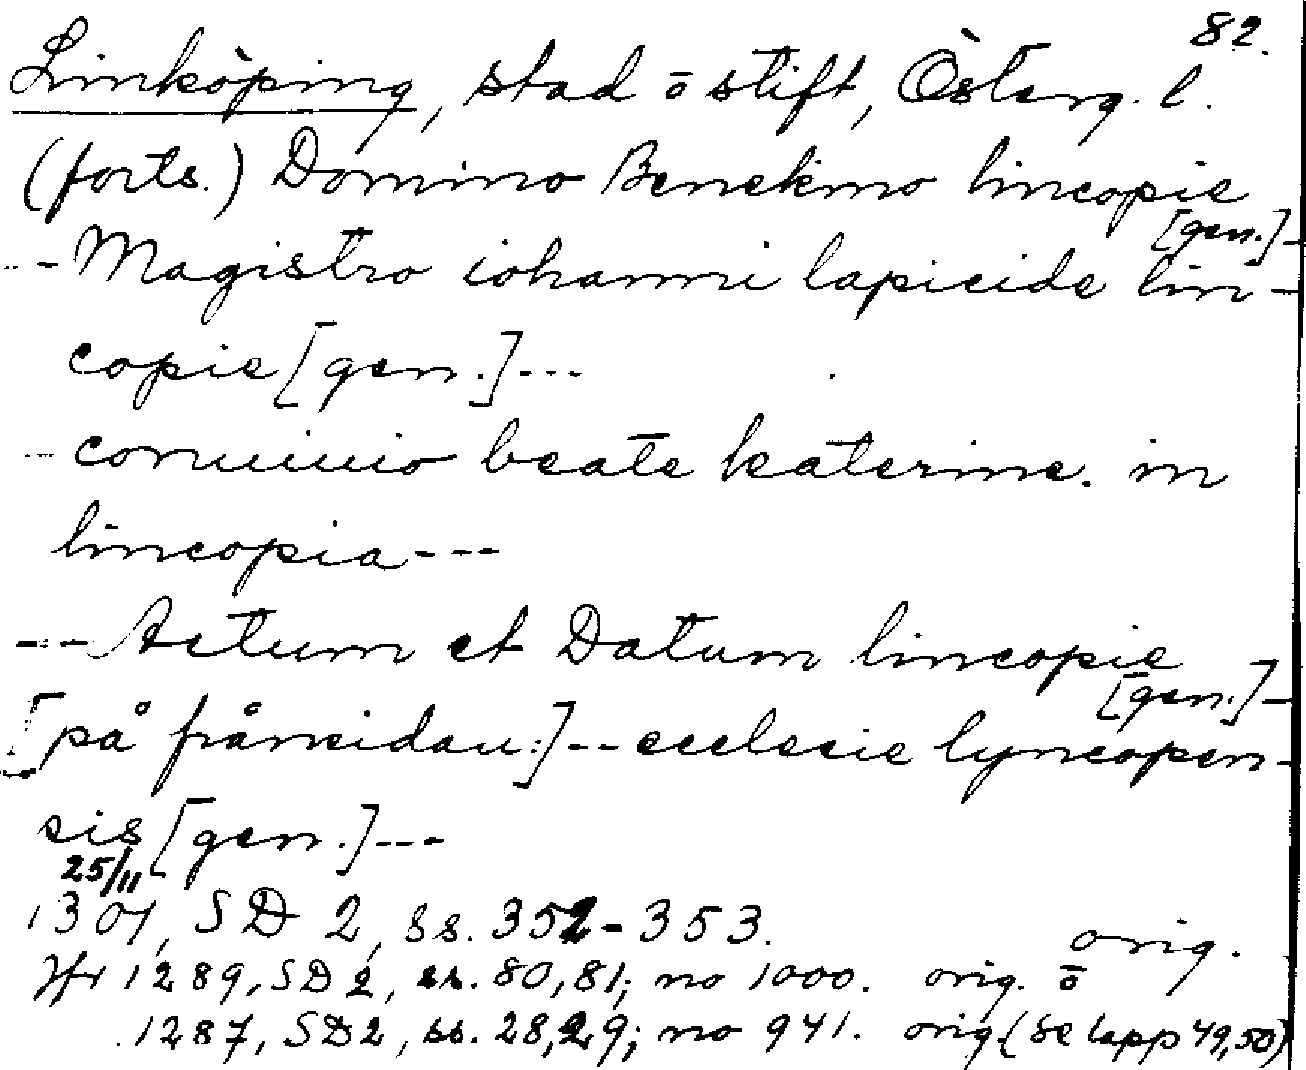 82.
Linköping, stad ō stift, Österg. l.
(forts.) Domino Benekino lincopie
[gen.]-
--Magistro iohanni lapicide lin-
copie [gen.]---
--conuiuio beate katerine. in
lincopia---
---Actum et Datum lincopie
[gen.]-
[på frånsidan:]--ecclesie lyncopen-
sis [gen.]---
25/11
1301, SD 2, ss. 352-353. orig.
Jfr 1289, SD 2, ss. 80,81; no 1000. orig. ō
1287, SD2, ss. 28,29; no 941. orig. (se lapp 49,50)